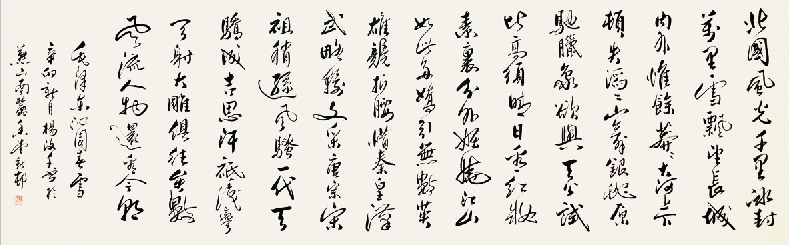 北國風光千里冰封
萬里雪飄望長城
内外惟餘莽々大河上下
頓失滔々山舞銀蛇原
馳臘象欲與天公試
比高須晴日看紅妝
素裹分外妖嬈江山
如此多嬌引無數英
雄競折腰惜秦皇漢
武略輸文采唐宗宋
祖稍遜風騷一代天
驕成吉思汗祗識彎
弓射大雕俱往矣數
風流人物還看今朝
毛澤東沁園春雪
辛卯新月楊
燕山南